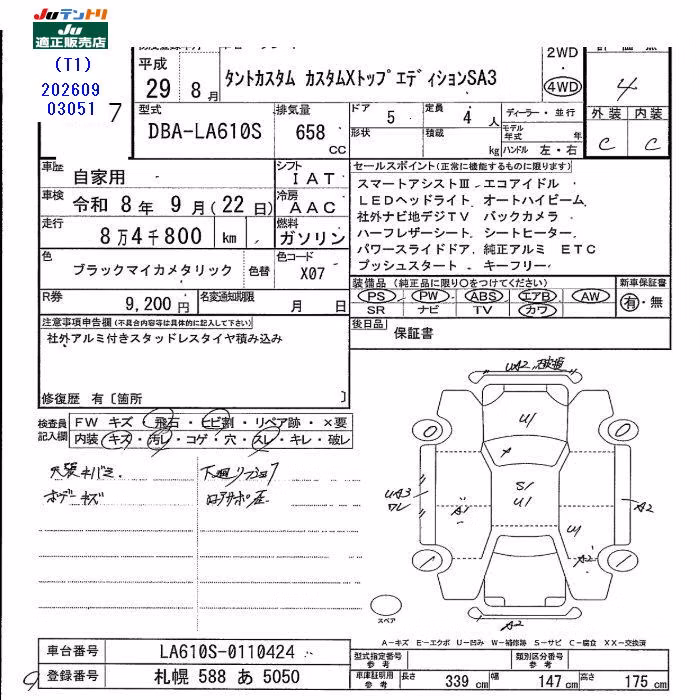 JUテントリ
JU
適正販売店
(T1)
202609
03051
7
平成
29 8月
タントカスタム カスタムXトップエディションSA3
2WD
4WD
4
型式
DBA-LA610S
排気量
658
CC
ドア 5
定員 4 人
ディーラー・並行
形状
積載
kg
モデル年式 年
ハンドル 左・右
外装 内装
C C
車歴 自家用
シフト IAT
車検 令和 8年 9月(22日)
冷房 AAC
走行 8万4千800 km
燃料 ガソリン
色 ブラックマイカメタリック 色替
色コード X07
R券 9,200円
名変通知期限 月 日
セールスポイント(正常に機能するものに限ります)
スマートアシストⅢ エコアイドル
LEDヘッドライト オートハイビーム
社外ナビ地デジTV バックカメラ
ハーフレザーシート シートヒーター
パワースライドドア 純正アルミ ETC
プッシュスタート キーフリー
装備品 (純正品に限り○をつけてください)
新車保証書
PS PW ABS エアB AW
有・無
SR ナビ TV カワ
後日品 保証書
注意事項申告欄(不具合内容等は具体的に記入して下さい)
社外アルミ付きスタッドレスタイヤ積み込み
修復歴 有〔箇所 〕
検査員記入欄
FW キズ・飛石・ヒビ割・リペア跡・×要
内装 キズ・汚レ・コゲ・穴・スレ・キレ・破レ
ボデーキズ
UA2
U/
S/
U/
UA3
ワレ
A1
A2
U/
A2
A2
スペア
A-キズ E-エクボ U-凹み W-補修跡 S-サビ C-腐食 XX-交換済
車台番号 LA610S-0110424
登録番号 札幌 588 あ 5050
型式指定番号 参考
類別区分番号 参考
車庫証明用 参考
長さ 339 cm 幅 147 cm 高さ 175 cm
9